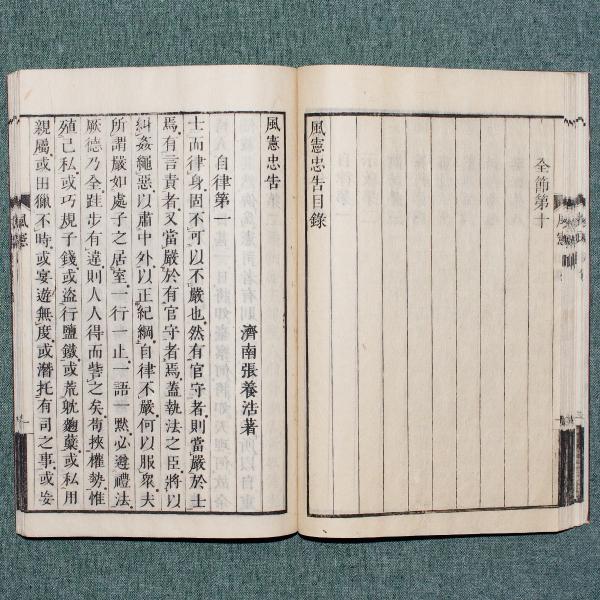 全節第十
風憲忠告目錄
風憲忠告
濟南張養浩著
自律第一
士而律身固不可以不嚴也然有官守者則當嚴於士
焉有言責者又當嚴於有官守者焉蓋執法之臣將以
糾姦繩惡以肅中外以正紀綱自律不嚴何以服眾夫
所謂嚴如處子之居室一行一止一語一默必遵禮法
厥德乃全跬步有違則人人得而訾之矣苟挾權勢惟
殖己私或巧規子錢或盜行鹽鐵或荒躭麴糱或私用
親屬或田獵不時或宴遊無度或潛托有司之事或妄
風憲